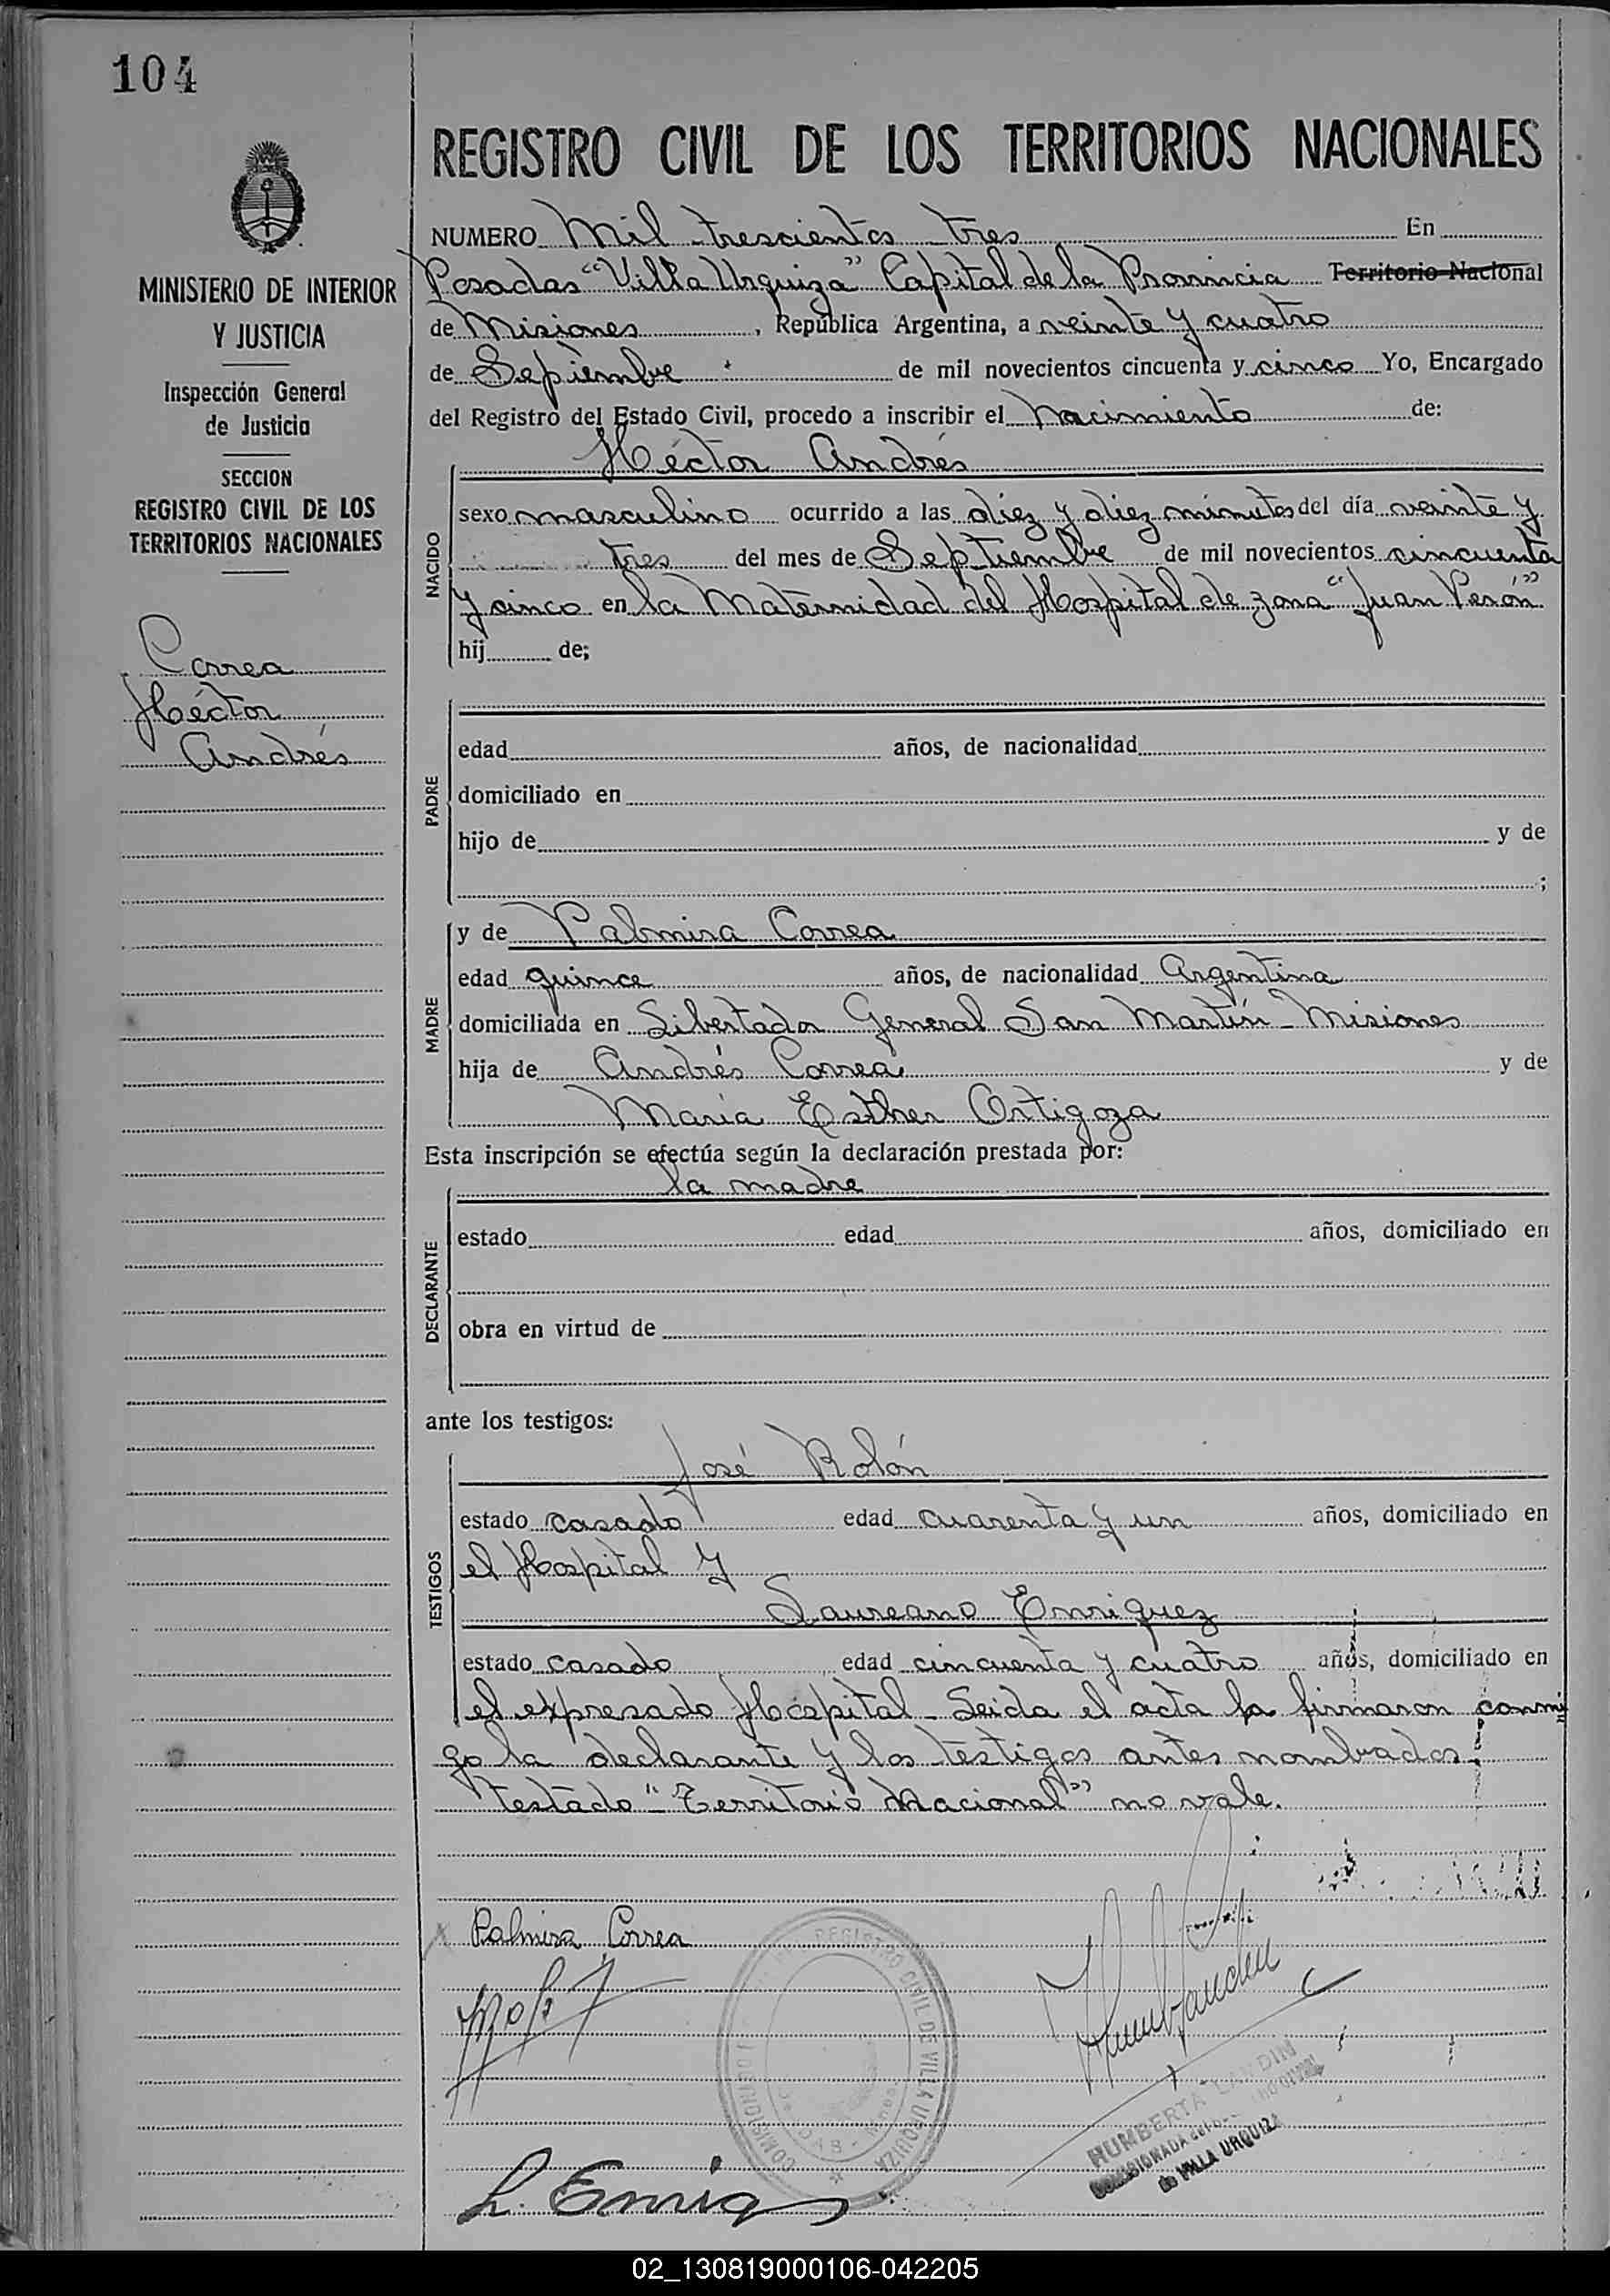 104
MINISTERIO DE INTERIOR
Y JUSTICIA
Inspección General
de Justicia
SECCION
REGISTRO CIVIL DE LOS
TERRITORIOS NACIONALES
Correa
Héctor
Andrés
REGISTRO CIVIL DE LOS TERRITORIOS NACIONALES
NUMERO Mil trescientos tres En
Posadas "Villa Urquiza" Capital de la Provincia Territorio Nacional
de Misiones, República Argentina, a veinte y cuatro
de Sepiembre de mil novecientos cincuenta y cinco Yo, Encargado
del Registro del Estado Civil, procedo a inscribir el nacimiento de:
Héctor Andrés
NACIDO
sexo masculino ocurrido a las diez y diez minutos del día veinte y
tres del mes de Septiembre de mil novecientos cincuenta
y cinco en la Maternidad del Hospital de zona "Juan Perón"
hij de;
PADRE
edad años, de nacionalidad
domiciliado en
hijo de y de
;
MADRE
y de Palmira Correa
edad quince años, de nacionalidad Argentina
domiciliada en Libertador General San Martín - Misiones
hija de Andrés Correa y de
María Esther Ortigoza
Esta inscripción se efectúa según la declaración prestada por:
la madre
DECLARANTE
estado edad años, domiciliado en
obra en virtud de
ante los testigos:
José Rolón
TESTIGOS
estado casado edad cuarenta y un años, domiciliado en
el Hospital y
Laureano Enriquez
estado casado edad cincuenta y cuatro años, domiciliado en
el expresado Hospital - Leida el acta la firmaron conmi
go la declarante y los testigos antes nombrados.
Testado "Territorio Nacional" no vale.
Palmira Correa
REGISTRO CIVIL DE VILLA URQUIZA
L. Enriq
HUMBERTA LANDIN
COMISIONADA
de VILLA URQUIZA
02_130819000106-042205